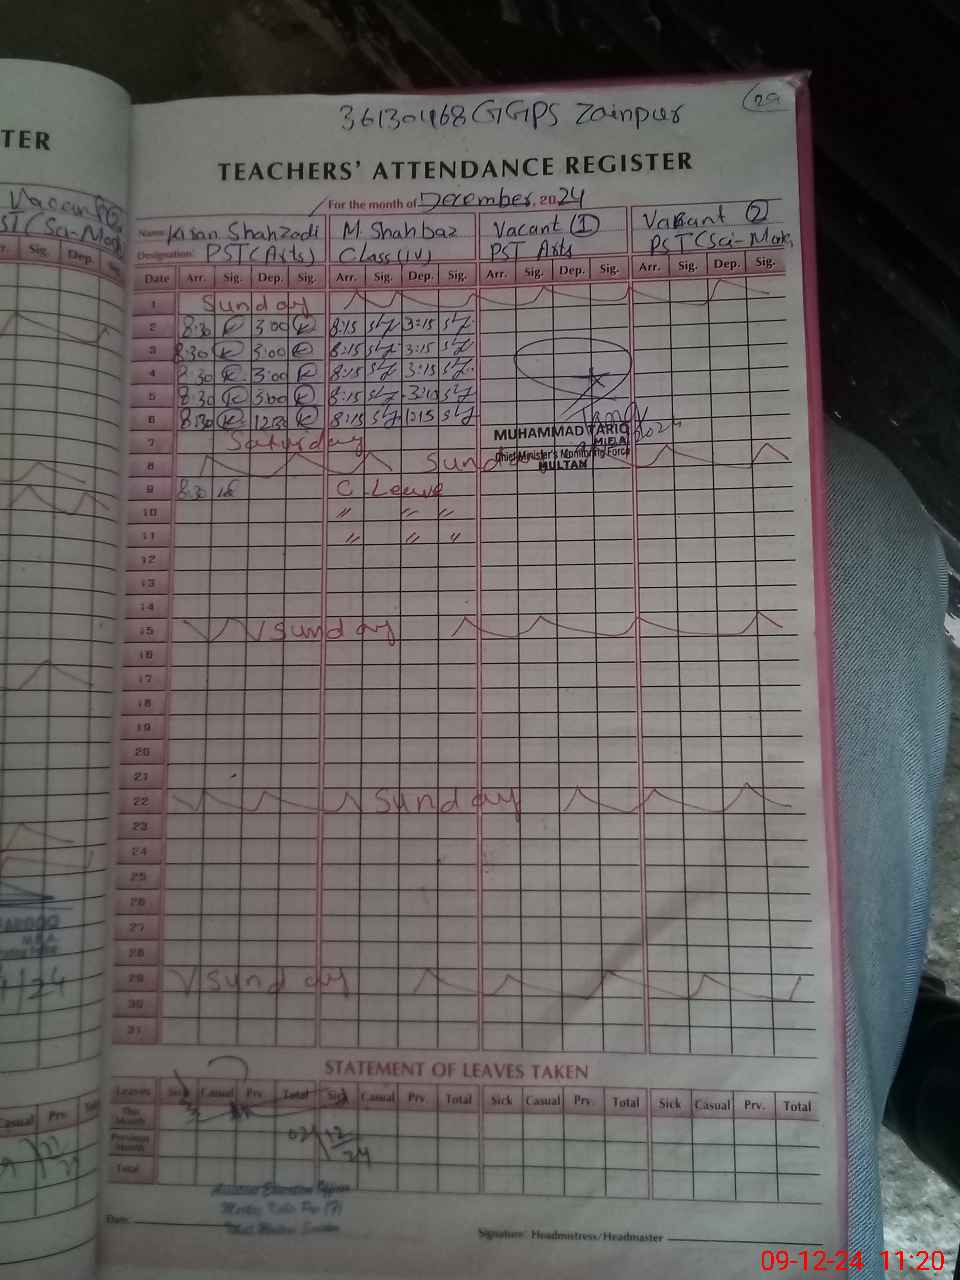 TER
Vacant
PST (Sci-Math)
Sig. Dep.
29
36130468 GGPS Zainpur
TEACHERS' ATTENDANCE REGISTER
For the month of December, 2024
Name: Kiran Shahzadi M. Shahbaz Vacant 1 Vacant 2
Designation: PST (Arts) Class (IV) PST Arts PST (Sci-Math)
Date Arr. Sig. Dep. Sig. Arr. Sig. Dep. Sig. Arr. Sig. Dep. Sig. Arr. Sig. Dep. Sig.
1 Sunday
2 8:30 3:00 8:15 3:15
3 8:30 3:00 8:15 3:15
4 8:30 3:00 8:15 3:15
5 8:30 3:00 8:15 3:15
6 8:30 12:30 8:15 12:15
MUHAMMAD TARIQ
M.E.A
7 Saturday
Chief Minister's Monitoring Force
MULTAN
8 Sunday
9 8:30 C Leave
10 〃 〃 〃
11 〃 〃 〃
12
13
14
15 Sunday
16
17
18
19
20
21
22 Sunday
23
24
25
26
27
28
29 Sunday
30
31
STATEMENT OF LEAVES TAKEN
Leaves Sick Casual Prv. Total Sick Casual Prv. Total Sick Casual Prv. Total Sick Casual Prv. Total
This Month
Previous Month
Total
Casual Prv.
Assistant Education Officer
Date:
Signature: Headmistress/Headmaster
09-12-24 11:20